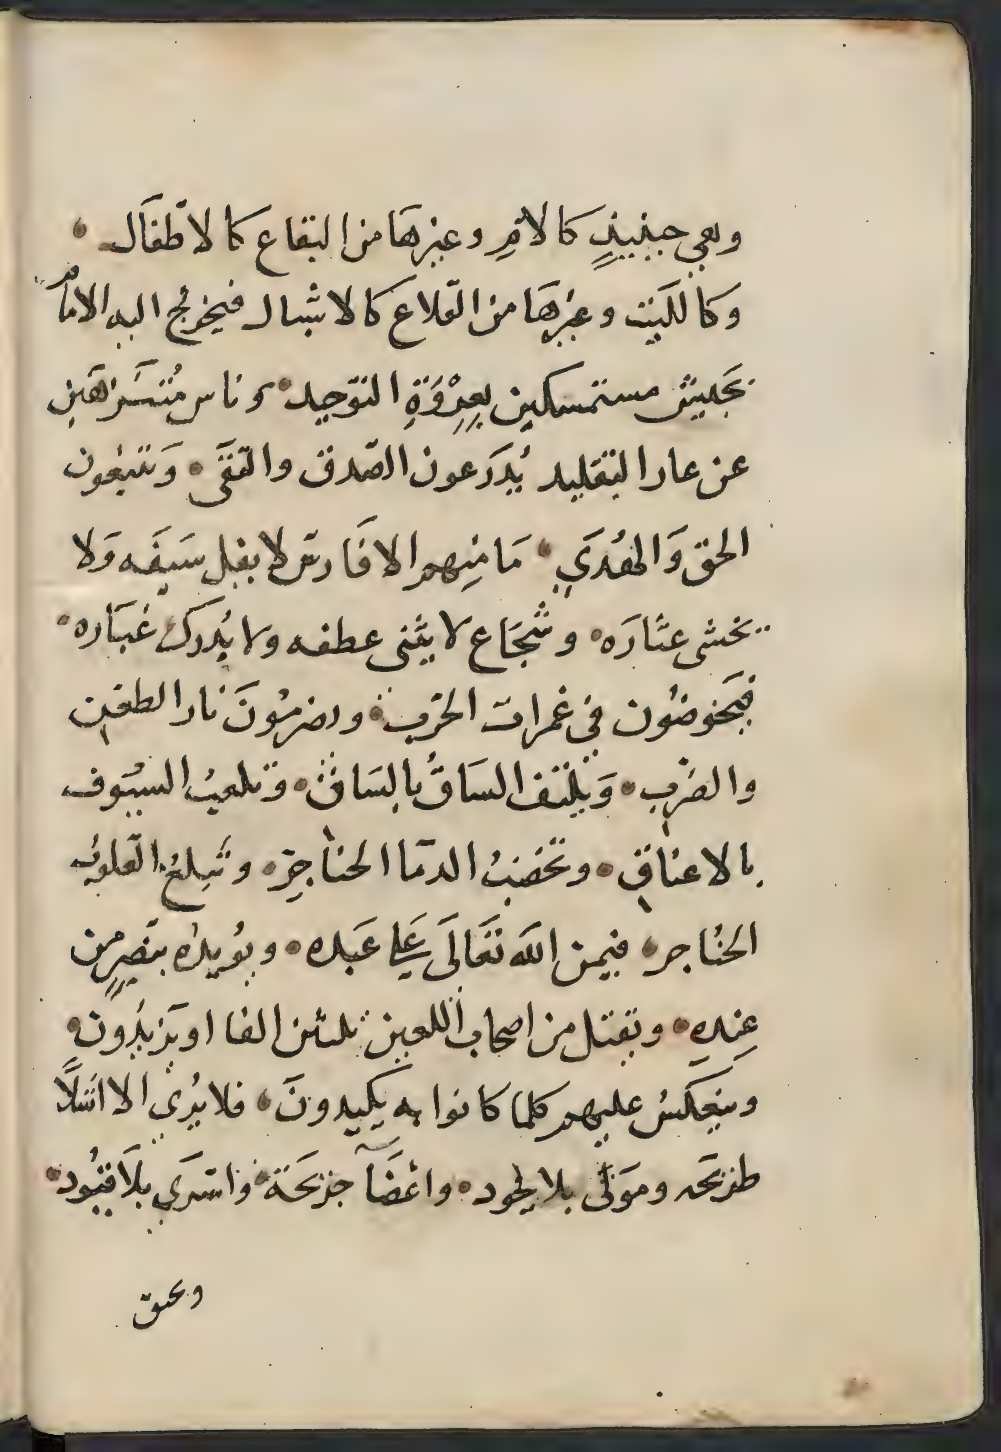 وهي حينئذٍ كالامِ وغيرهَا من البقاع كالاطفَال
وكَالليَث وغيرهَا من القلاع كالاشبال فيخرج اليه الامامُ
بجَيش مستمسكين بعِرْوَةِ التوَحيد وناس مُتنَزهَين
عن عار التقليد يُدرَعون الصّدق والتقَى وَيتبَعون
الحق وَالهُدَي مَا مِنهم الا فَارسٌ لا يفل سَيفَه وَلا
يخشى عثارَه وشُجَاع لا يثَنى عطفه ولا يُدرَك غبَاره
فيَخوضوُن في غمرات الحَرب ويضرمُونَ نار الطعَن
والضَرب وَيلتَف السَاقُ بالسَاق وتلعبُ السيُوف
بالاعناقِ وتخضبُ الدمَا الحناجِرَ وتبلغُ القلوبُ
الحنُاجر فيمن الله تعَالَى عَلي عَبده ويؤيدُه بنَصرٍ من
عِندِه ويقتل من اصحاب اللعين ثلثين الفا اويَزيدُون
وينعَكسُ عليهم كلما كانوا به يكيدونَ فلا يُرى الا اشلًا
طريحَه وموَتى بلا لحود واعضَآ جريَحَة واسَرَي بلَا قيُود
وبحق